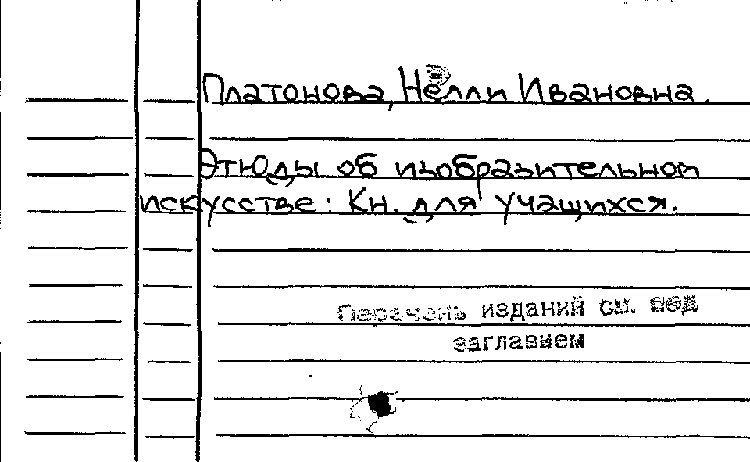 Платонова, Нелли Ивановна.
Этюды об изобразительном
искусстве: Кн. для учащихся.
Перечень изданий см. под
заглавием